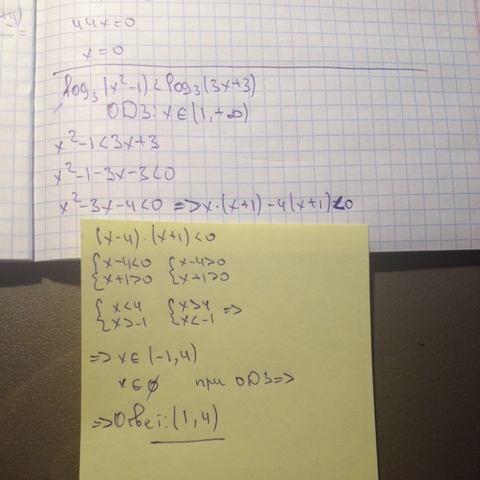 44x=0
x=0
log₃(x²-1)<log₃(3x+3)
ОДЗ: x∈(1,+∞)
x²-1<3x+3
x²-1-3x-3<0
x²-3x-4<0 =>x·(x+1)-4(x+1)<0
(x-4)·(x+1)<0
{x-4<0 {x-4>0
{x+1>0 {x+1>0
{x<4 {x>4 =>
{x>-1 {x<-1
=>x∈(-1,4)
x∈∅ при ОДЗ=>
=>Ответ:(1,4)